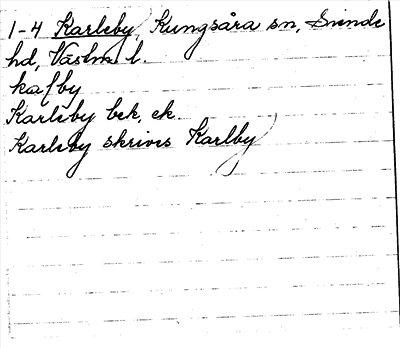 1-4 Karleby, Kungsåra sn, Siende
hd, Västm. l.
kalby
Karleby bek, ek.
Karleby skrives Karlby